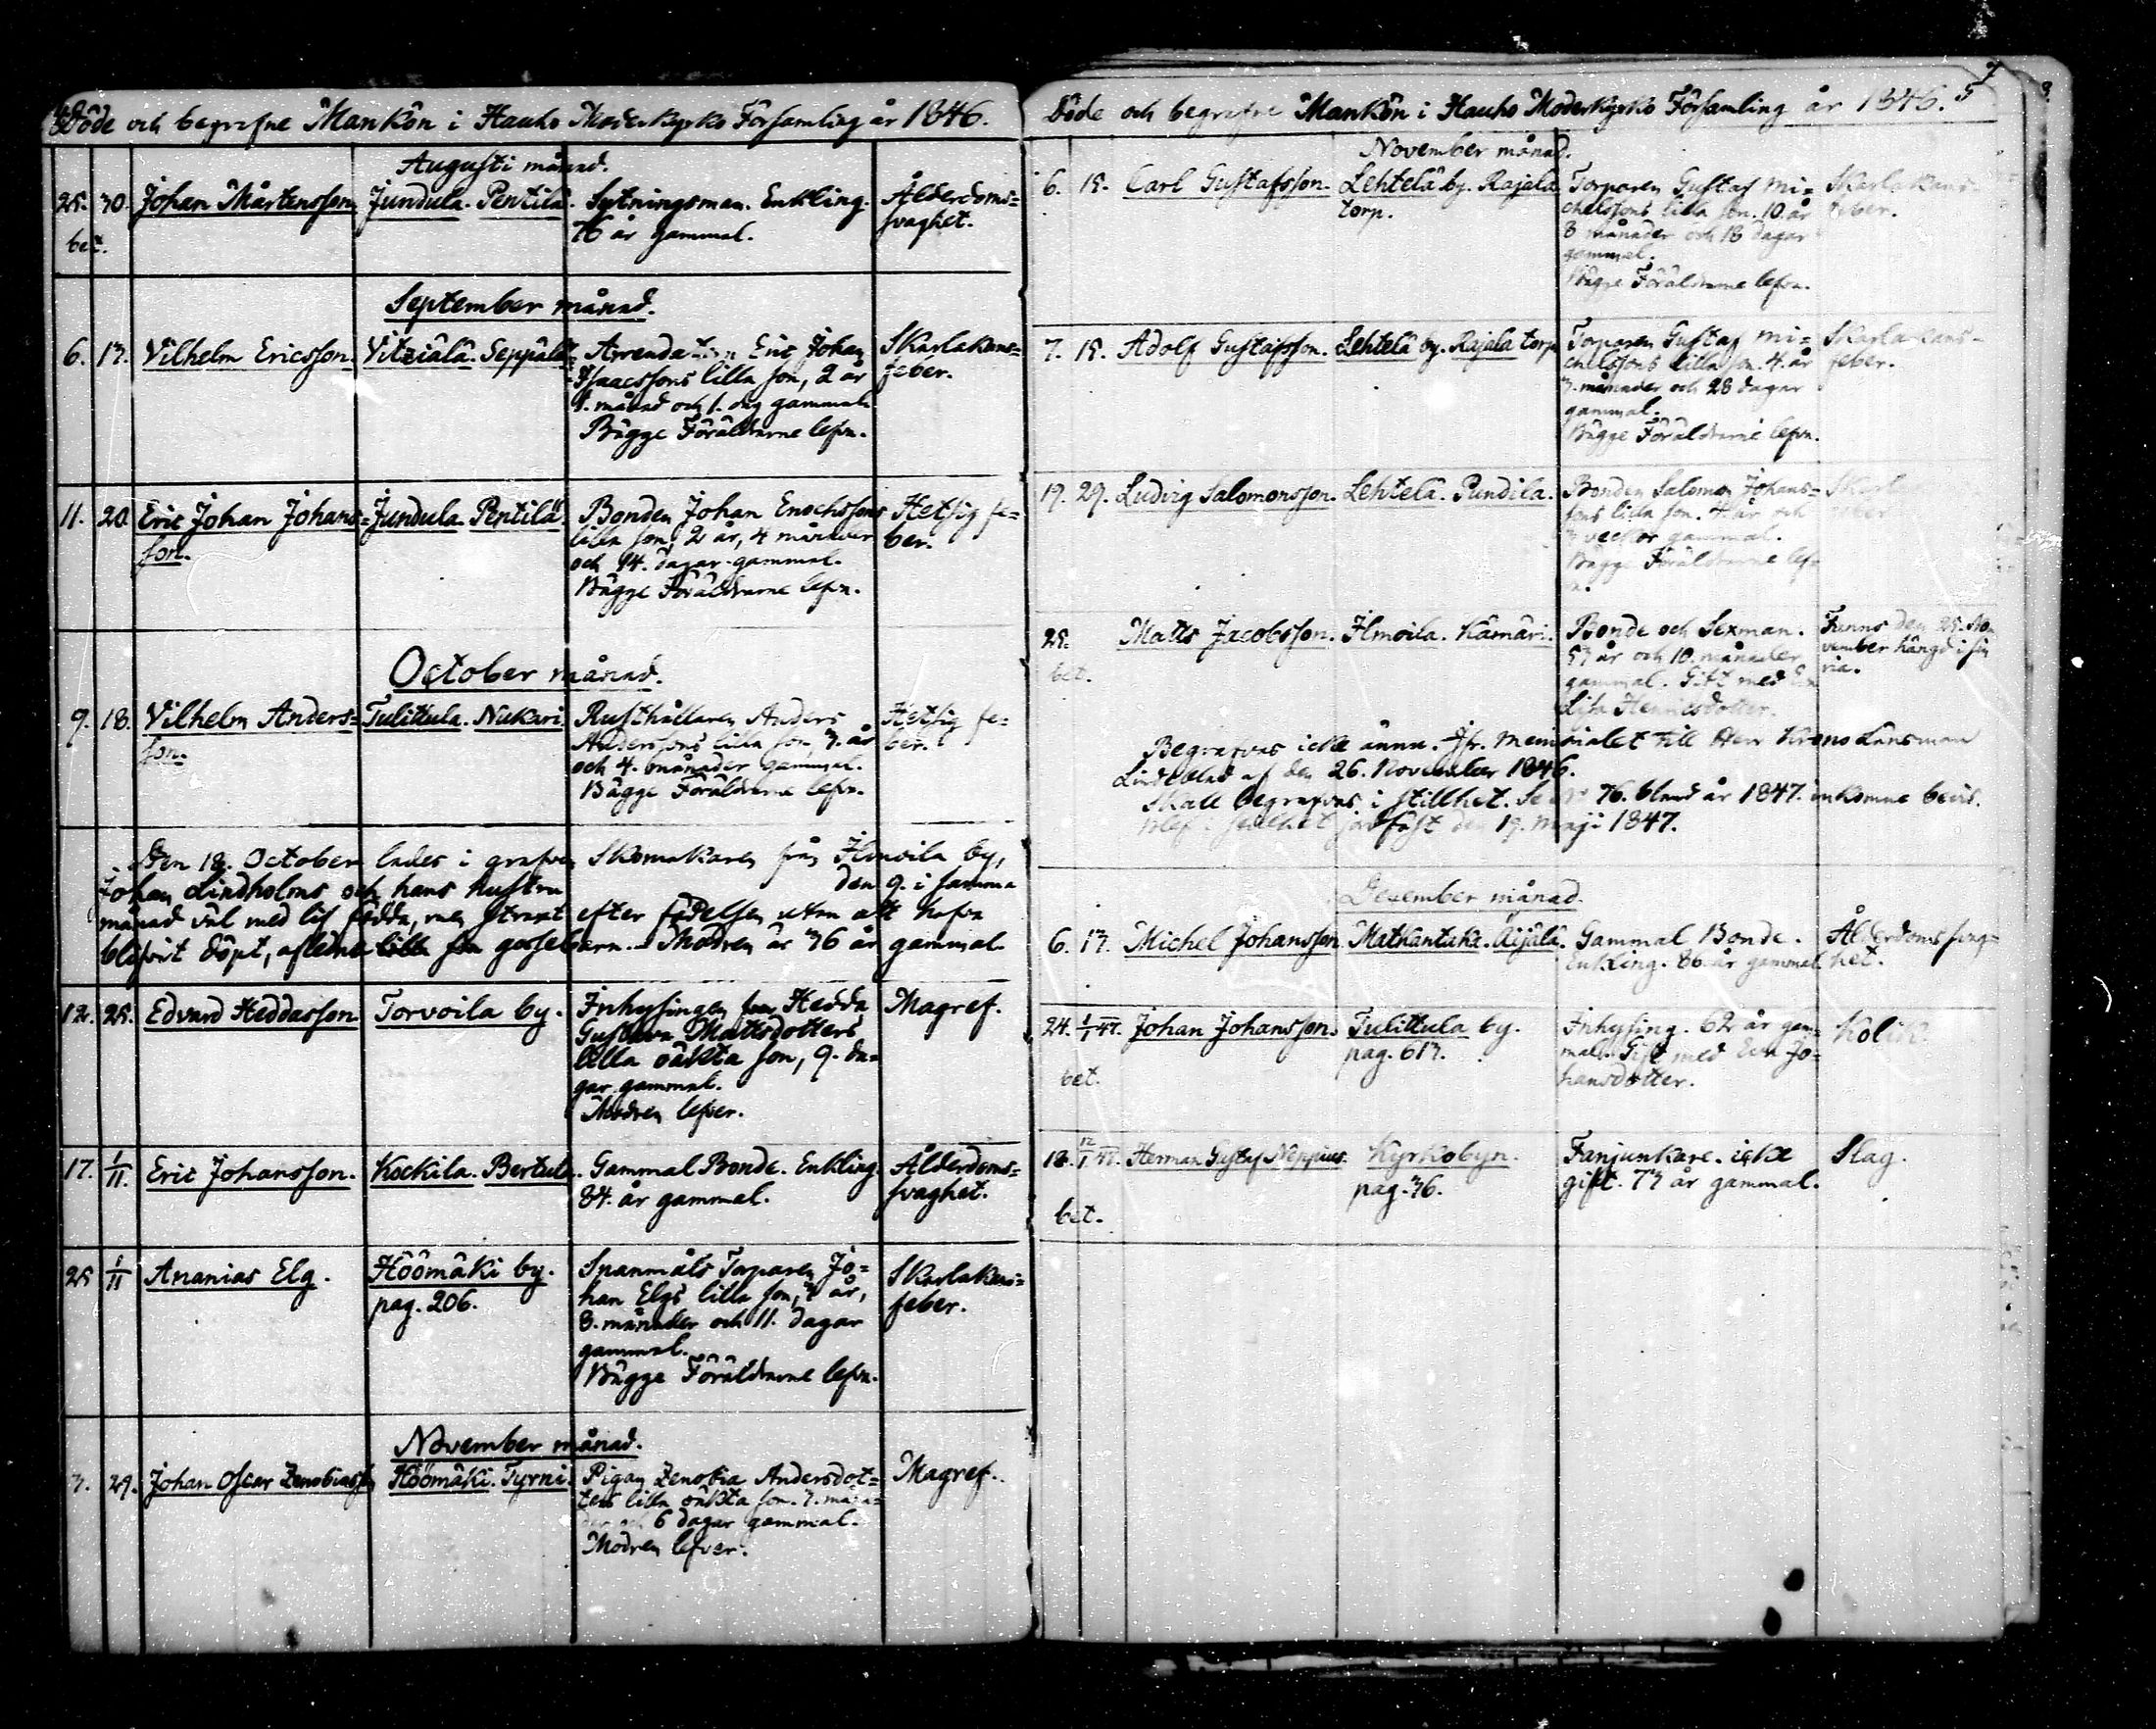 Döde och begrafne Mankön i Hauho Moderkyrko Församling år 1846.
Augusti månad.
25. 30. Johan Mårtensson Jundula. Pentilä. Sytningsman. Enkling. Ålderdoms=
76 år gammal. svaghet.
bet.
September månad.
6. 13. Vilhelm Ericsson. Vitziälä. Seppälä. Eric Johan Skarlakans=
Isaacssons lilla son, 2 år feber.
1. månad och 1. dag gammal.
Bägge Föräldrarne lefva.
11. 20. Eric Johan Johans= Jundula. Pentilä. Bonden Johan Enochssons Hetsig fe=
son. lilla son, 2 år, 4 månader ber.
och 14. dagar gammal.
Bägge Föräldrarne lefva.
October månad.
9. 18. Vilhelm Anders= Tulittula. Nukari. Rusthållaren Anders Hetsig fe=
son. Anderssons lilla son, 3. år ber.
och 4. månader gammal.
Bägge Föräldrarne lefva.
Den 18. October lades i grafven Skomakaren från Ilmoila by,
Johan Lindholms och hans hustru den 9. i samma
månad väl med lif födda, men straxt efter födelsen utan att hafva
blifvit döpt, aflidne lilla son gossebarn. Modren är 36 år gammal.
12. 25. Edvard Heddasson Torvoila by. Inhysingen Hedda Magref.
Gustava Mattsdotters
lilla oäkta son, 9. da=
gar gammal.
Modren lefver.
17. 1/11. Eric Johansson. Kockila. Bertula. Gammal Bonde. Enkling. Ålderdoms=
84. år gammal. svaghet.
25 1/11 Ananias Elg. Höömäki by. Spanmåls Torparen Jo= Skarlakans=
pag. 206. han Elgs lilla son, 3 år, feber.
8. månader och 11. dagar
gammal.
Bägge Föräldrarne lefva.
November månad.
3. 29. Johan Oscar Zenobiasson Höömäki. Tyrni. Pigan Zenobia Andersdot= Magref.
ters lilla oäkta son. 3. måna=
der och 6 dagar gammal.
Modren lefver.
Döde och begrafne Mankön i Hauho Moderkyrko Församling år 1846. 5
November månad.
6. 15. Carl Gustafsson. Lehtelä by. Rajala Torparen Gustaf Mi= Skarlakans-
torp. chelssons lilla son. 10. år feber.
8 månader och 18 dagar
gammal.
Bägge Föräldrarne lefva.
7. 15. Adolf Gustafsson. Lehtelä by. Rajala torp Torparen Gustaf Mi= Skarlakans-
chelssons lilla son. 4. år feber.
3. månader och 28 dagar
gammal.
Bägge Föräldrarne lefva.
19. 29. Ludvig Salomonsson. Lehtelä. Pundila. Bonden Salomon Johans=
sons lilla son. 4. år och
3 veckor gammal.
Bägge Föräldrarne lef=
va.
25. Matts Jacobsson. Ilmoila. Kämäri. Bonde och Sexman. Fanns den 25. No
53 år och 10. månader vember hängd i sin
bet. gammal. Gift med ria.
Lisa Henricsdotter.
Begrafvas icke ännu. Jfr. Memorialet till Herr Krono Länsman
Lindeblad af den 26. November 1846.
Skall begrafvas i stillhet. Se N:o 76. bland år 1847. inkomne bevis.
Blef i stillhet jordfäst den 19. Maji 1847.
December månad.
6. 13. Michel Johansson Matkantaka. Äijälä. Gammal Bonde. Ålderdoms svag=
Enkling. 86. år gammal. het.
24. 1/1 47. Johan Johansson. Tulittula by. Inhysing. 62 år gam= Kolik.
pag. 613. mal. Gift med Eva Jo=
bet. hansdotter.
18. 12/1 47. Herman Gustaf Neppius. Kyrkobyn. Fanjunkare. icke Slag.
pag. 36. gift. 73 år gammal.
bet.